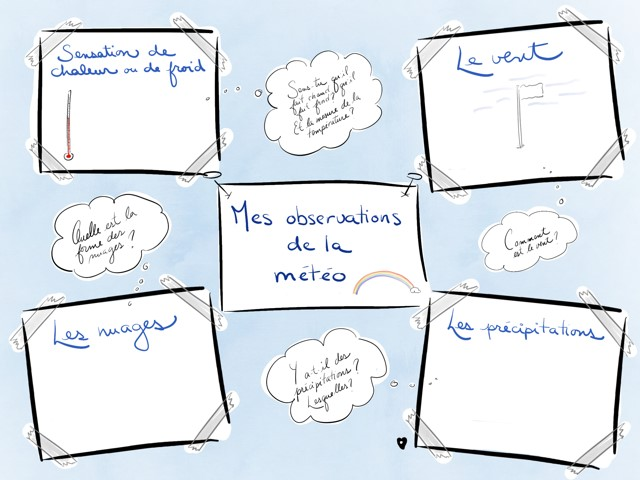 Sensation de
chaleur ou de froid
Sens-tu qu'il
fait chaud? qu'il
fait froid?
Et la mesure de la
température?
Le vent
Quelle est la
forme des
nuages?
Mes observations
de la
météo
Comment
est le vent?
Les nuages
Y a t-il des
précipitations?
Lesquelles?
Les précipitations